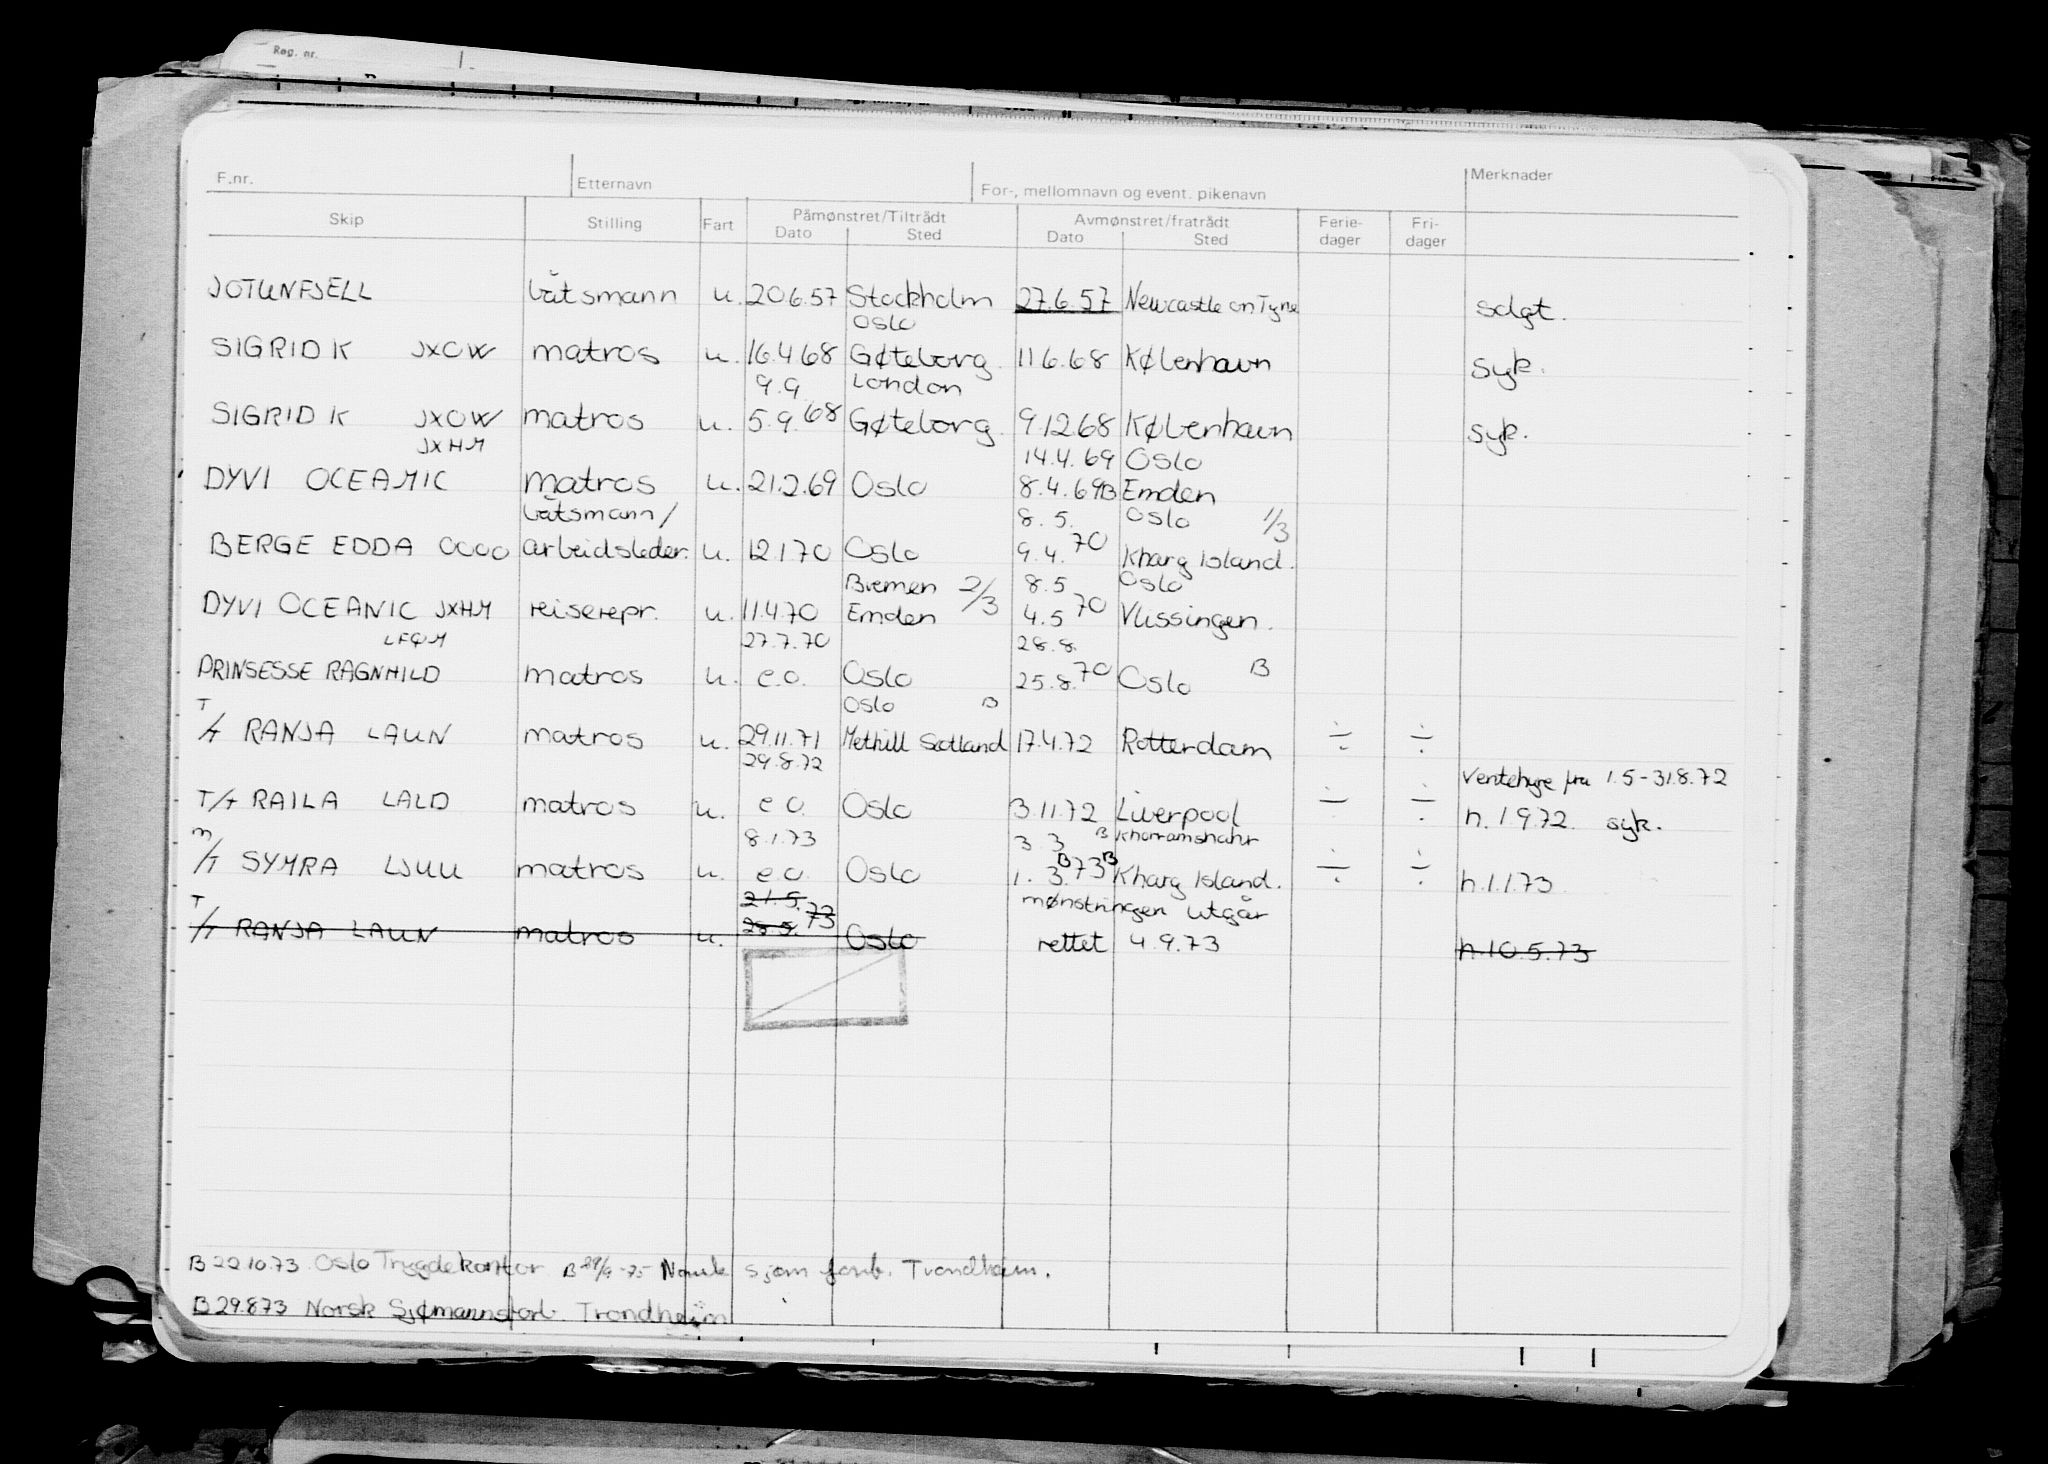 Reg. nr.
F.nr. Etternavn For-, mellomnavn og event. pikenavn Merknader
Skip Stilling Fart Påmønstret/Tiltrådt Avmønstret/fratrådt Ferie- Fri-
Dato Sted Dato Sted dager dager
JOTUNFJELL båtsmann u. 20.6.57 Stockholm 27.6.57 Newcastle on Tyne solgt.
Oslo
SIGRID K JXOW matros u. 16.4.68 Gøteborg 11.6.68 København syk.
9.9. London
SIGRID K JXOW matros u. 5.9.68 Gøteborg. 9.12.68 København syk.
JXHM 14.4.69 Oslo
DYVI OCEANIC matros u. 21.2.69 Oslo 8.4.69 B Emden
båtsmann/ 8.5. Oslo 1/3
BERGE EDDA OOOO arbeidsleder. u. 12.1.70 Oslo 9.4.70 Kharg Island.
Bremen 2/3 8.5 Oslo
DYVI OCEANIC JXHM reiserepr. u. 11.4.70 Emden 4.5.70 Vlissingen.
LFQM 27.7.70 28.8.
PRINSESSE RAGNHILD matros u. e.o. Oslo 25.8.70 Oslo B
Oslo B
T/T RANJA LAUN matros u. 29.11.71 Methill Scotland 17.4.72 Rotterdam ÷ ÷
29.8.72 Ventehyre fra 1.5-31.8.72
T/T RAILA LALD matros u. e.o. Oslo 3.11.72 Liverpool ÷ ÷ h. 1.9.72. syk.
8.1.73 3.3 B Khorramshahr
M/T SYMRA LJUU matros u. e.o. Oslo 1.3.73 B Kharg Island. ÷ ÷ h.1.1.73
21.5. mønstringen utgår
T/T RANJA LAUN matros u. 28.5.73 Oslo rettet 4.9.73 h.10.5.73
B 22.10.73 Oslo Trygdekontor B 29/9-75 Norsk sjøm forb. Trondheim.
B 29.8.73 Norsk Sjømannsforb. Trondheim